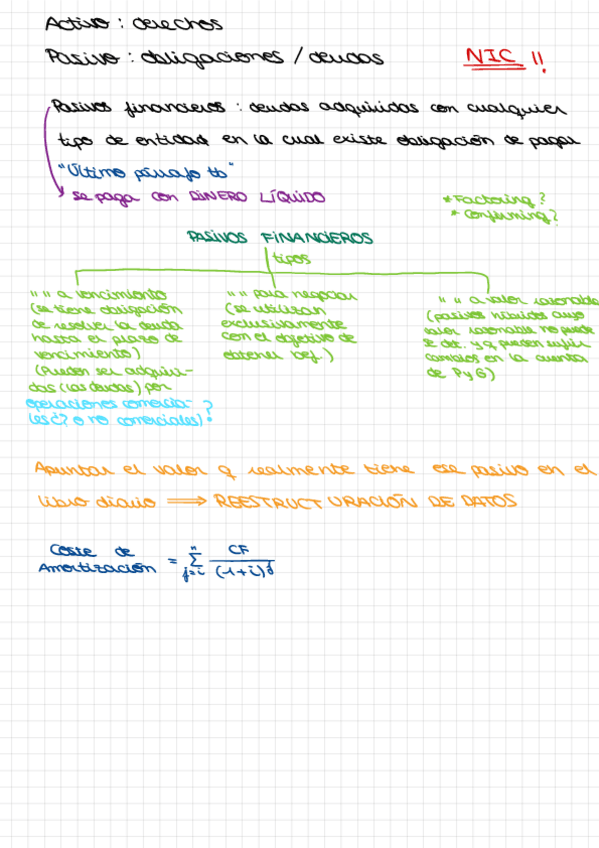 Activo : derechos
Pasivo : obligaciones / deudas NIC !!
Pasivos financieros : deudas adquiridas con cualquier
tipo de entidad en la cual existe obligación de pagar
"Último párrafo tb"
se paga con DINERO LÍQUIDO
* Factoring?
* Confirming?
PASIVOS FINANCIEROS
tipos
" " a vencimiento
(se tiene obligación
de resolver la deuda
hasta el plazo de
vencimiento)
(Pueden ser adquiri-
das (las deudas) por
operaciones comercia-
les ¿? o no comerciales)?
" " para negociar
(se utilizan
exclusivamente
con el objetivo de
obtener bef.)
" " a valor razonable
(pasivos híbridos cuyo
valor razonable no puede
se det. y q pueden sufrir
cambios en la cuenta
de PyG)
Apuntar el valor q realmente tiene ese pasivo en el
libro diario ⟹ REESTRUCTURACIÓN DE DATOS
Coste de
Amortización = n Σ j=i CF / (1+i)^j